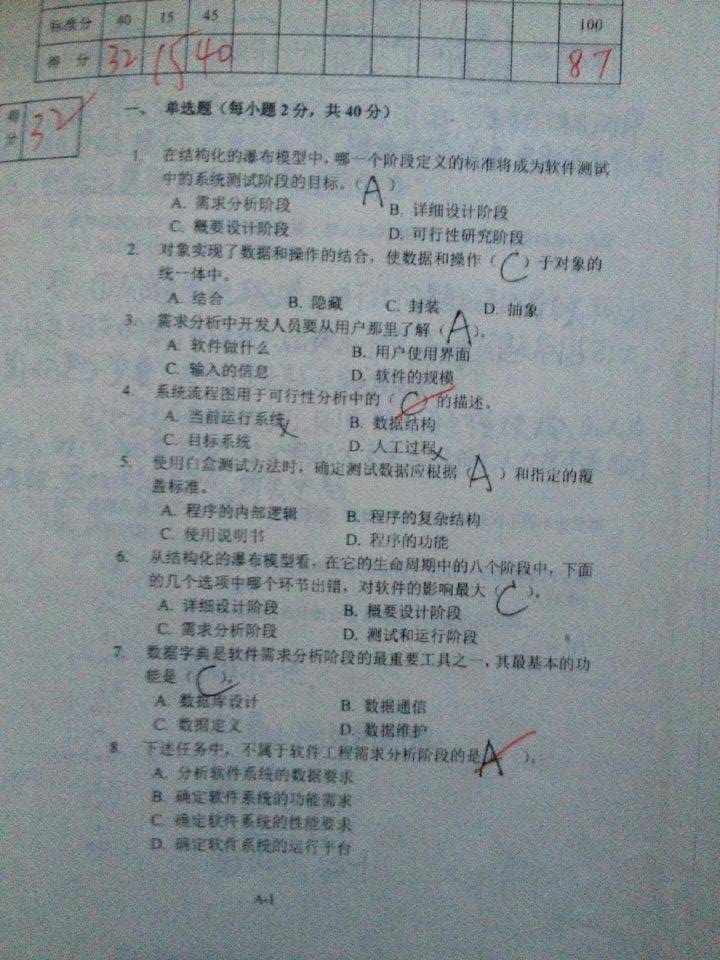 标准分 40 15 45 100
得 分 32 15 40 87
得分 32
一、 单选题（每小题 2 分，共 40 分）
1. 在结构化的瀑布模型中，哪一个阶段定义的标准将成为软件测试
中的系统测试阶段的目标。（A）
A. 需求分析阶段 B. 详细设计阶段
C. 概要设计阶段 D. 可行性研究阶段
2. 对象实现了数据和操作的结合，使数据和操作（C）于对象的
统一体中。
A. 结合 B. 隐藏 C. 封装 D. 抽象
3. 需求分析中开发人员要从用户那里了解（A）。
A. 软件做什么 B. 用户使用界面
C. 输入的信息 D. 软件的规模
4. 系统流程图用于可行性分析中的（C）的描述。
A. 当前运行系统 B. 数据结构
C. 目标系统 D. 人工过程
5. 使用白盒测试方法时，确定测试数据应根据（A）和指定的覆
盖标准。
A. 程序的内部逻辑 B. 程序的复杂结构
C. 使用说明书 D. 程序的功能
6. 从结构化的瀑布模型看，在它的生命周期中的八个阶段中，下面
的几个选项中哪个环节出错，对软件的影响最大（C）。
A. 详细设计阶段 B. 概要设计阶段
C. 需求分析阶段 D. 测试和运行阶段
7. 数据字典是软件需求分析阶段的最重要工具之一，其最基本的功
能是（C）。
A. 数据库设计 B. 数据通信
C. 数据定义 D. 数据维护
8. 下述任务中，不属于软件工程需求分析阶段的是（A）。
A. 分析软件系统的数据要求
B. 确定软件系统的功能需求
C. 确定软件系统的性能要求
D. 确定软件系统的运行平台
A-1